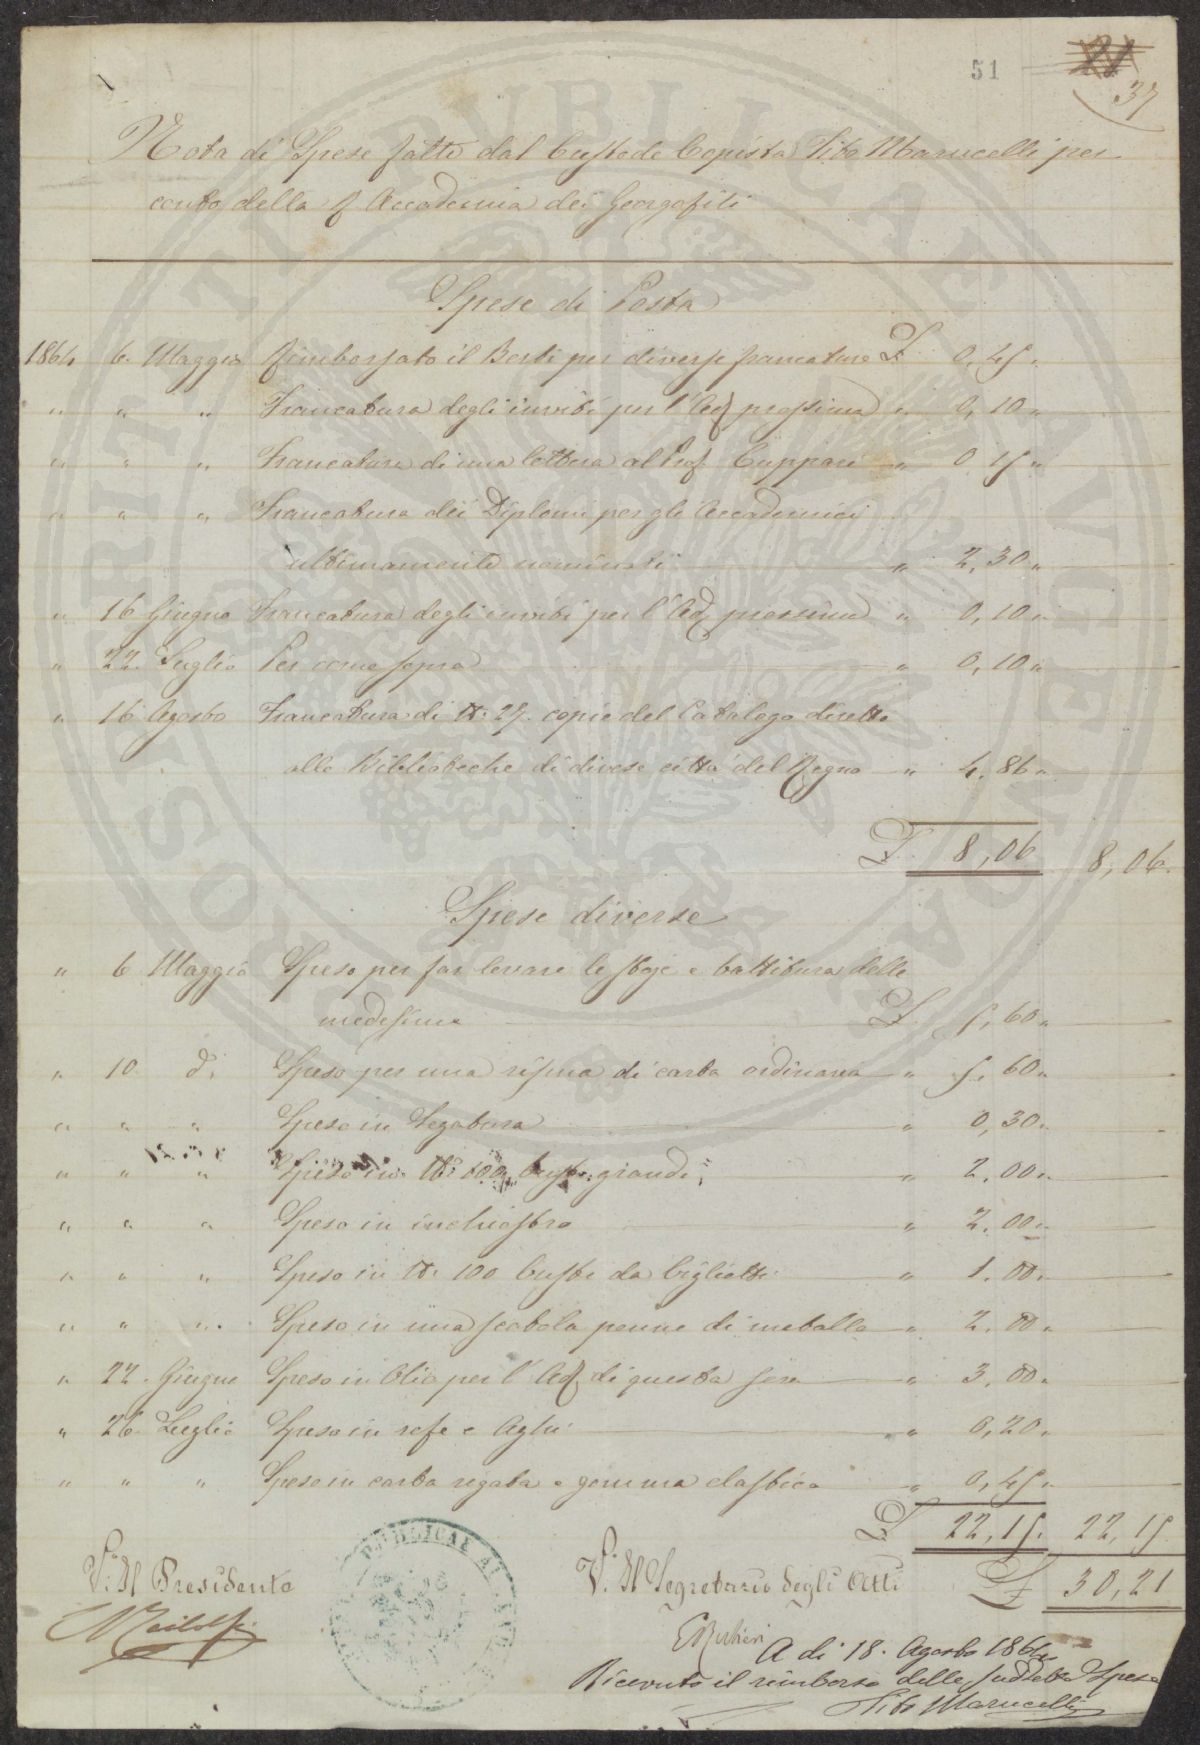 51
21
37
Nota di Spese fatte dal Custode Copista Tito Marucelli per
conto della R Accademia dei Georgofili
Spese di Posta
1864 6. Maggio Rimborsato il Berti per diverse francature £ 0,45 "
" " " Francatura degli inviti per l'Ad. prossima " 0,10 "
" " " Francatura di una lettera al Prof. Cuppari " 0,15 "
" " " Francatura dei Diplomi per gli Accademici
ultimamente nominati " 2,30 "
" 16 Giugno Francatura degli inviti per l'Ad. prossima " 0,10 "
" 22. Luglio Per come sopra " 0,10 "
" 16 Agosto Francatura di N: 27. copie del Catalogo dirette
alle Biblioteche di diverse città del Regno " 4,86 "
£ 8,06 8,06.
Spese diverse
" 6 Maggio Speso per far levare le stoje e battitura delle
medesime £ 5,60 "
" 10 do. Speso per una risma di carta ordinaria " 5,60 "
" " " Speso in Segatura " 0,30 "
" " " Speso in N: 100 buste grandi " 2,00 "
" " " Speso in inchiostro " 2,00 "
" " " Speso in N: 100 buste da biglietti " 1,00 "
" " " Speso in una scatola penne di metallo " 2,00 "
" 22. Giugno Speso in Olio per l'Ad. di questa sera " 3,00 "
" 26. Luglio Speso in refe e Aghi " 0,20 "
" " " Speso in carta rigata e gomma elastica " 0,45 "
£ 22,15. 22,15
£ 30,21
V. Il Presidente
CRidolfi
V. Il Segretario degli Atti
ERubieri
A di 18. Agosto 1864
Ricevuto il rimborso delle suddette Spese
Tito Marucelli
PROSPERITATI PUBLICAE AUGENDAE